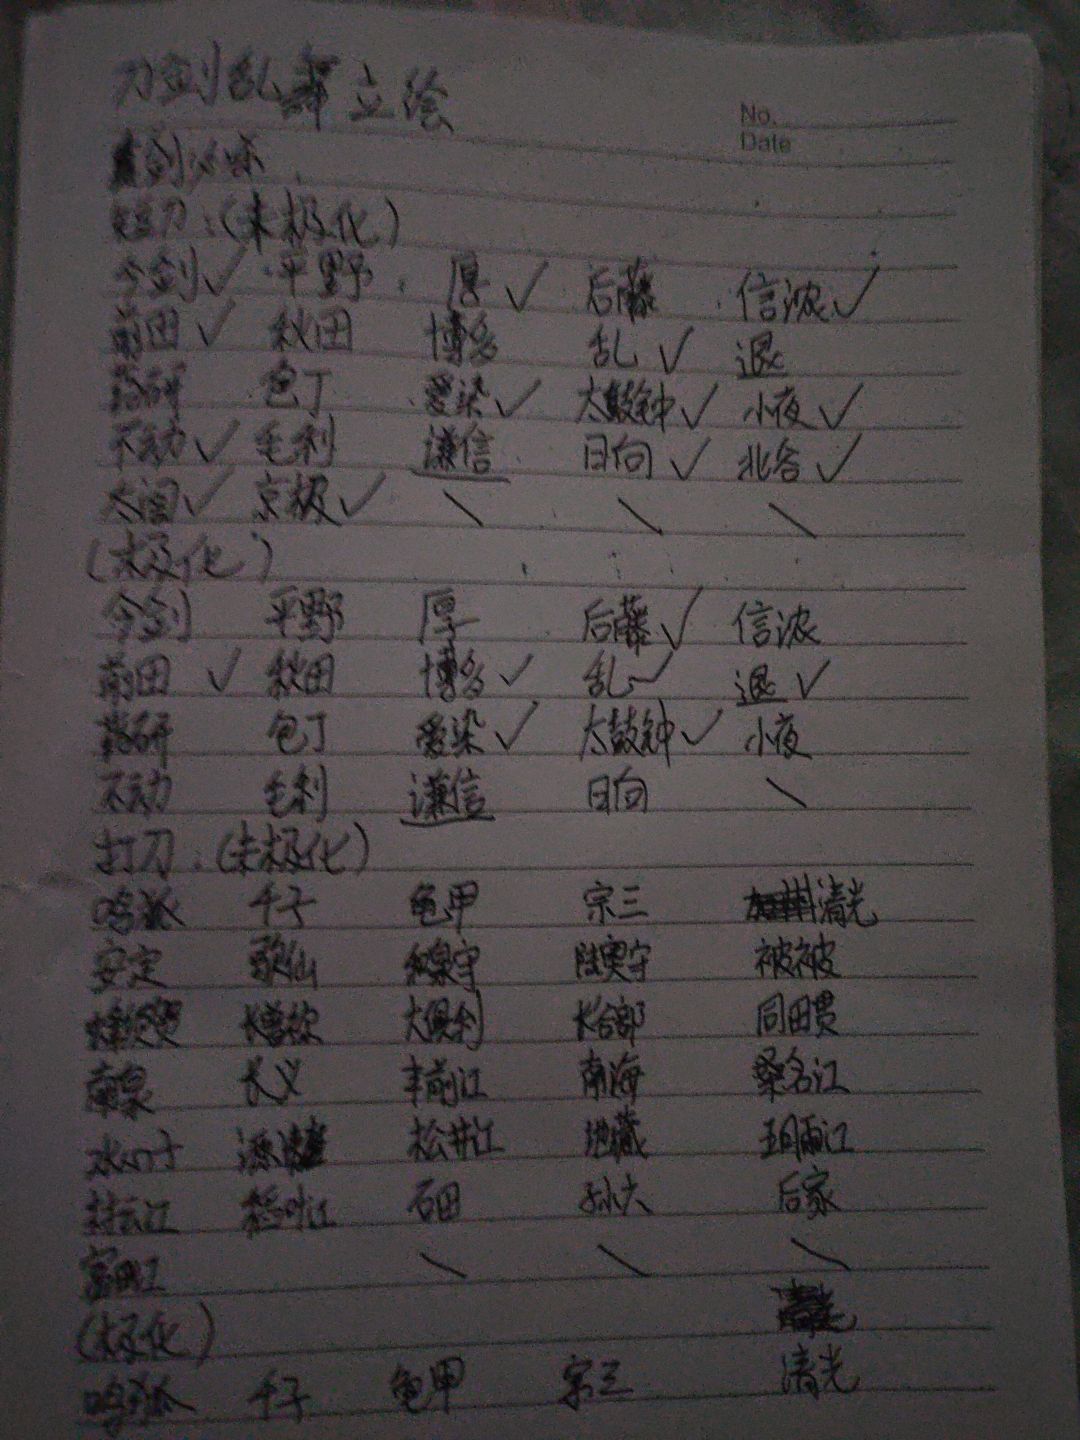 刀剑乱舞立绘
No.
Date
短刀:(未极化)
今剑✓ 平野 厚✓ 后藤 信浓✓
前田✓ 秋田 博多 乱✓ 退
药研 包丁 爱染✓ 太鼓钟✓ 小夜✓
不动✓ 毛利 谦信 日向✓ 北谷✓
太阁✓ 京极✓ \ \ \
(极化)
今剑 平野 厚 后藤✓ 信浓
前田✓ 秋田 博多✓ 乱✓ 退✓
药研 包丁 爱染✓ 太鼓钟✓ 小夜
不动 毛利 谦信 日向 \
打刀:(未极化)
鸣狐 千子 龟甲 宗三 清光
安定 歌仙 陆奥守 被被
长曾祢 大俱利 长谷部 同田贯
南泉 长义 丰前江 南海 桑名江
水心子 源清麿 松井江 地藏 五月雨江
村云江 稻叶江 石田 孙六 后家
富田江 \ \ \
(极化)
鸣狐 千子 龟甲 宗三 清光